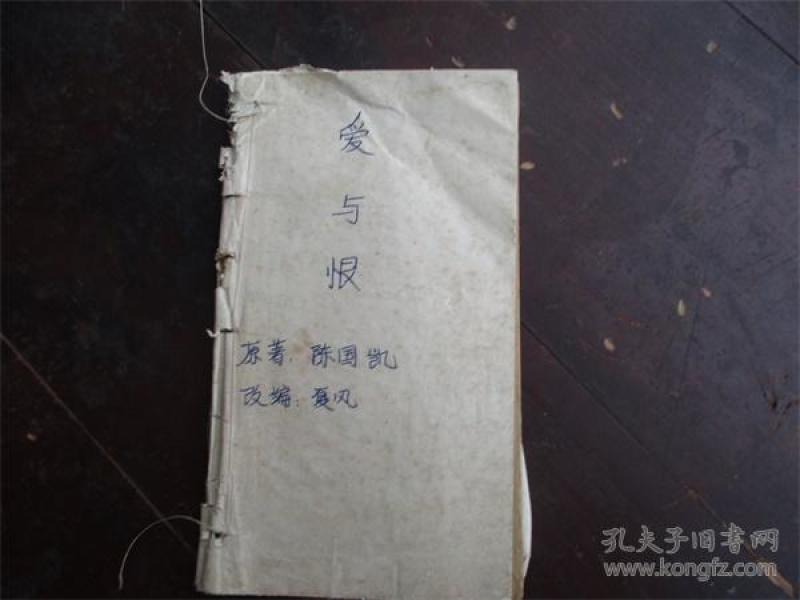 爱
与
恨
原著：陈国凯
改编：夏风
孔夫子旧书网
www.kongfz.com